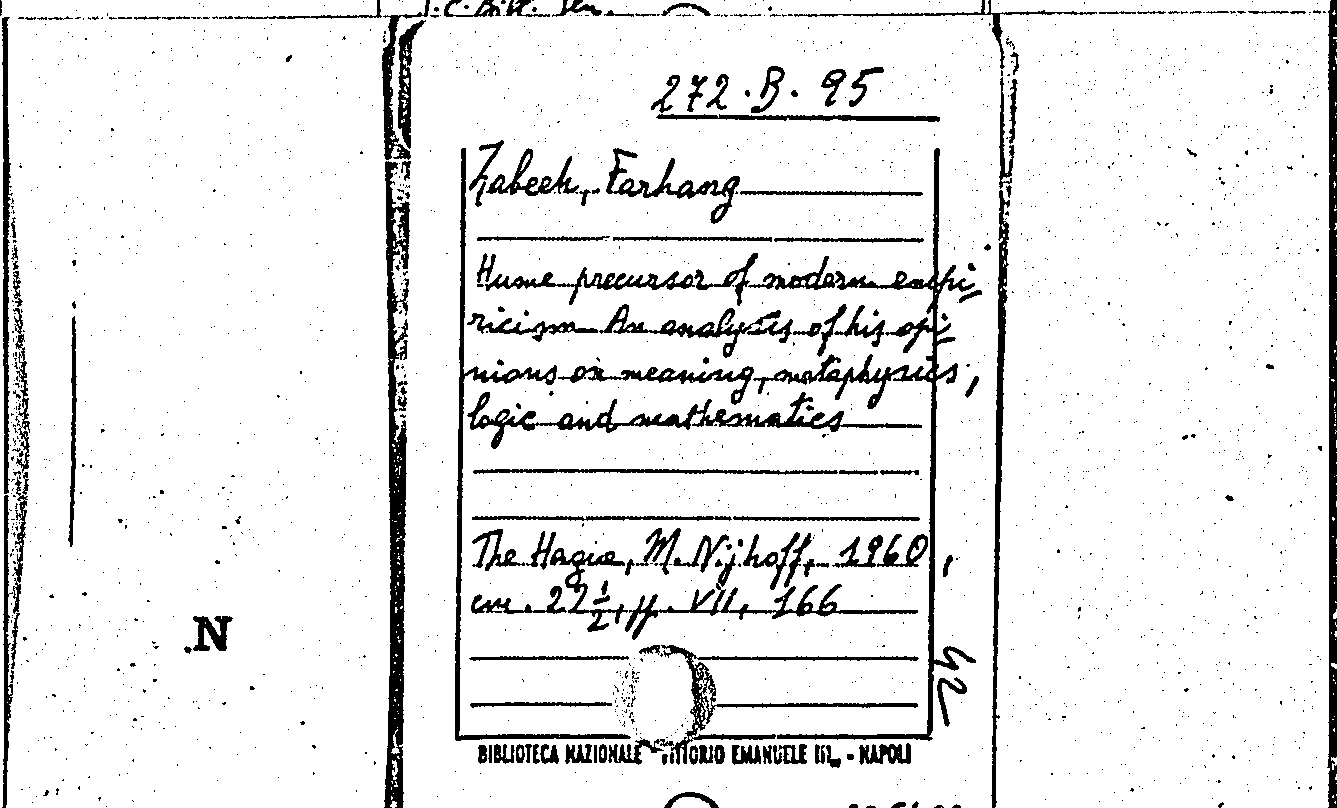 272.B.95
Zabeeh, Farhang
Hume precursor of modern empi=
ricism An analysis of his opi=
nions on meaning, metaphysics,
logic and mathematics
The Hague, M. Nijhoff, 1960,
cm. 22 1/2, pp. VII, 166
N
BIBLIOTECA NAZIONALE VITTORIO EMANUELE III - NAPOLI